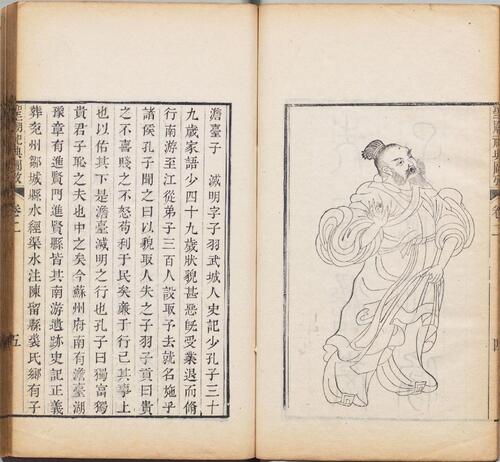 澹臺子 滅明字子羽武城人史記少孔子三十
九歲家語少四十九歲狀貌甚惡旣受業退而脩
行南游至江從弟子三百人設取予去就名施乎
諸侯孔子聞之曰以貌取人失之子羽子貢曰貴
之不喜賤之不怒苟利于民矣廉于行己其事上
也以佑其下是澹臺滅明之行也孔子曰獨富獨
貴君子恥之夫也中之矣今蘇州府南有澹臺湖
豫章有進賢門進賢縣皆其南游遺跡史記正義
葬兗州鄒城縣水經渠水注陳留縣裘氏鄉有子
聖廟祀典圖攷 卷二 五